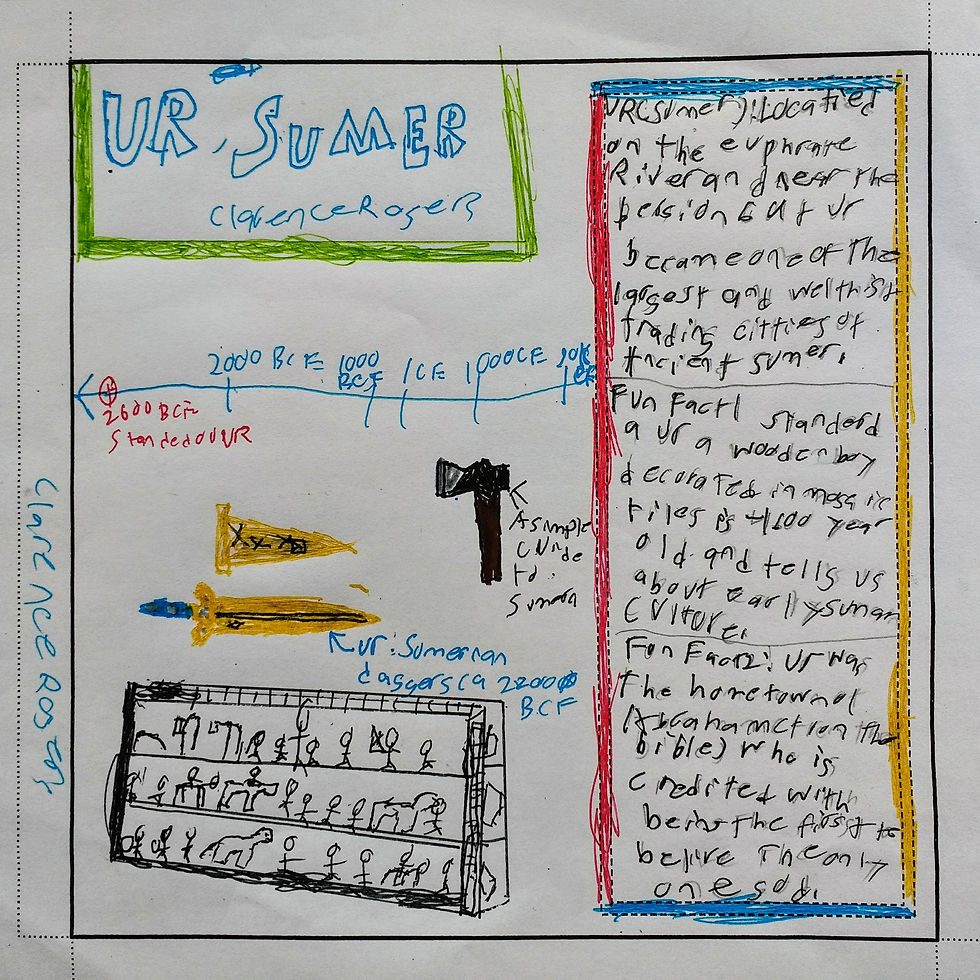 UR, SUMER
Clarence Rogers
2000 BCE
1000
BCE
1CE
1000CE
2600 BCE
Clarence Rogers
A simple
ur: Sumerian
daggers ca
BCE
UR(Sumer): Located
on the euphrate
River and near the
Ur
became one of the
largest and welthist
trading citties of
Ancient Sumer.
Fun Fact1 Standerd
a ur a wooden boy
decorated in mosaic
tiles is year
old and tells us
about early Suman
CUltore.
Fun Fact2: Ur was
the hometown of
Abraham
bible) who is
credited with
being the first to
belive the only
one god.